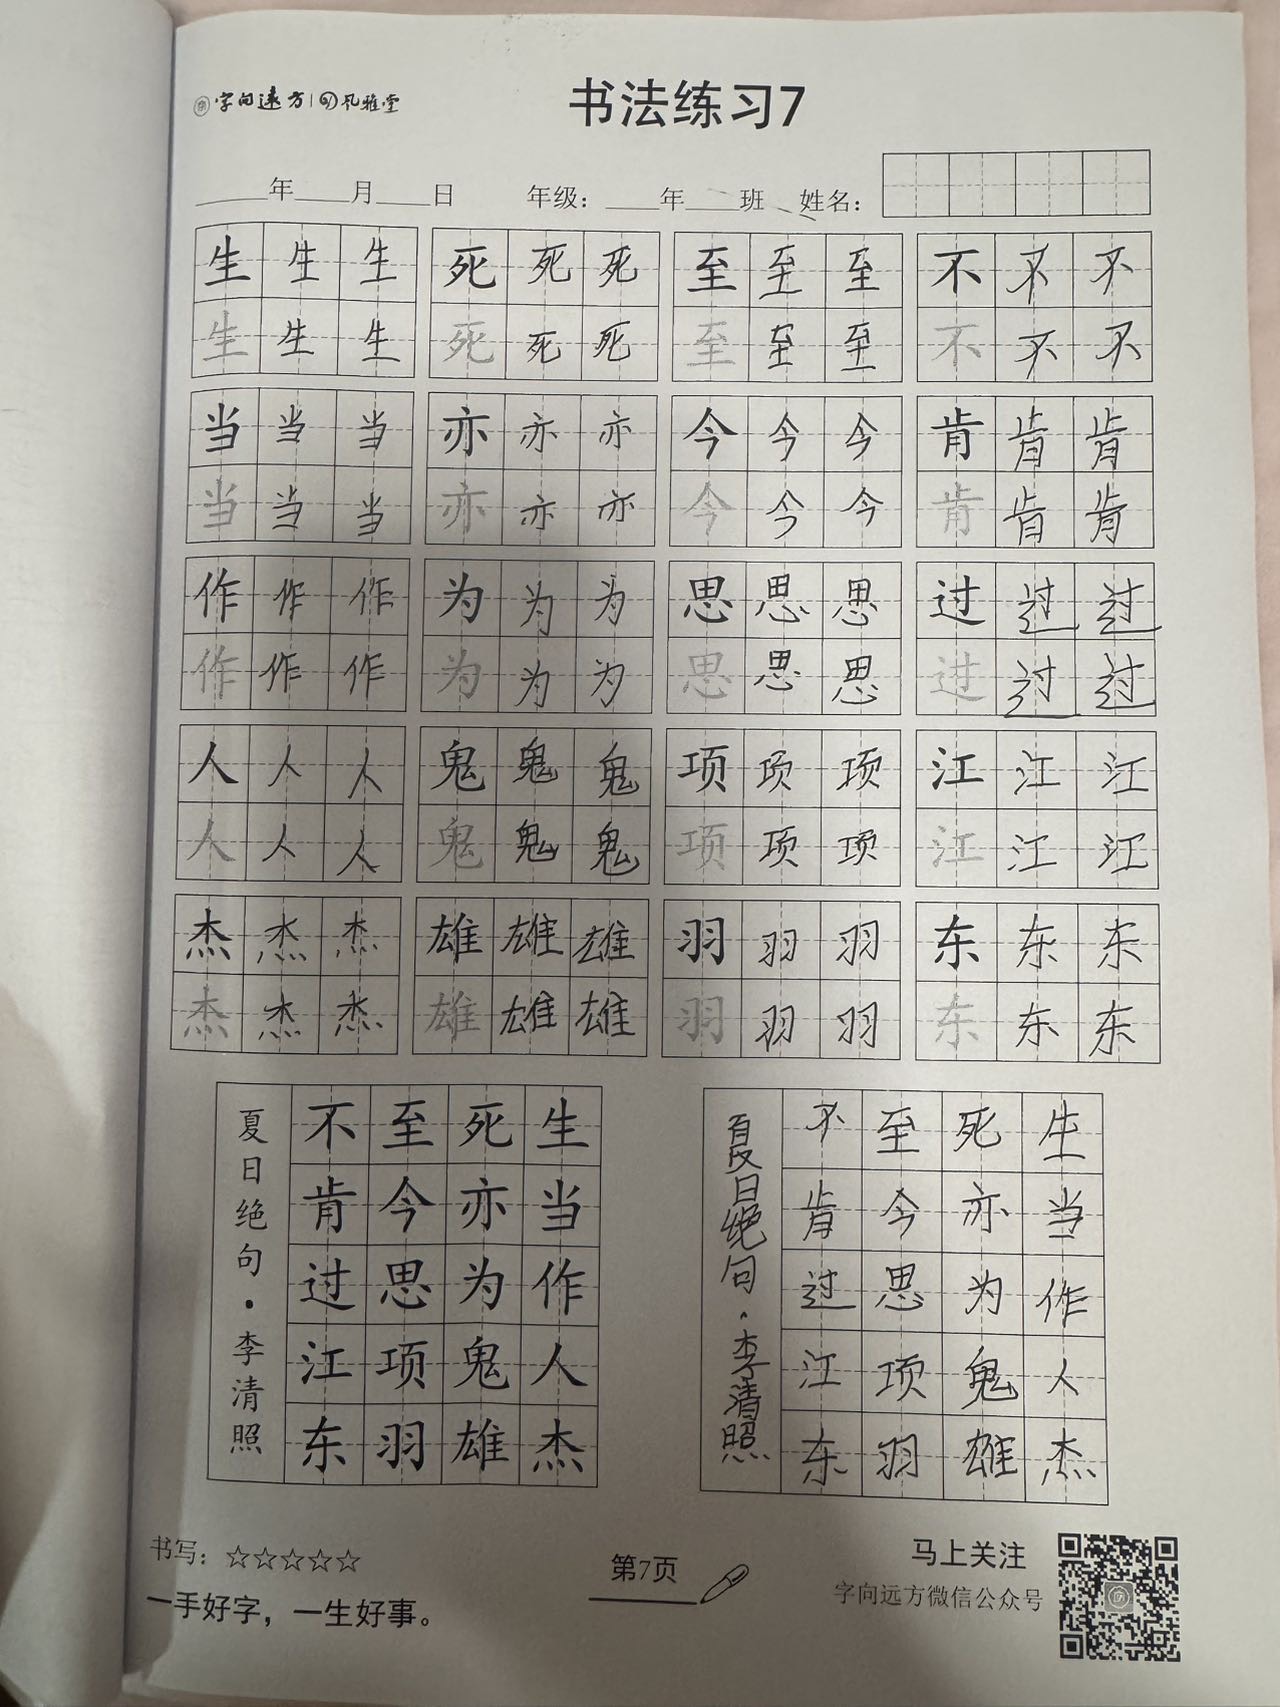 字向远方 | 风雅堂
书法练习7
____年____月____日 年级：____年____班 姓名：
生生生 死死死 至至至 不不不
生生生 死死死 至至至 不不不
当当当 亦亦亦 今今今 肯肯肯
当当当 亦亦亦 今今今 肯肯肯
作作作 为为为 思思思 过过过
作作作 为为为 思思思 过过过
人人人 鬼鬼鬼 项项项 江江江
人人人 鬼鬼鬼 项项项 江江江
杰杰杰 雄雄雄 羽羽羽 东东东
杰杰杰 雄雄雄 羽羽羽 东东东
生当作人杰
死亦为鬼雄
至今思项羽
不肯过江东
夏日绝句·李清照
生当作人杰
死亦为鬼雄
至今思项羽
不肯过江东
夏日绝句·李清照
书写：☆☆☆☆☆
一手好字，一生好事。
第7页
马上关注
字向远方微信公众号